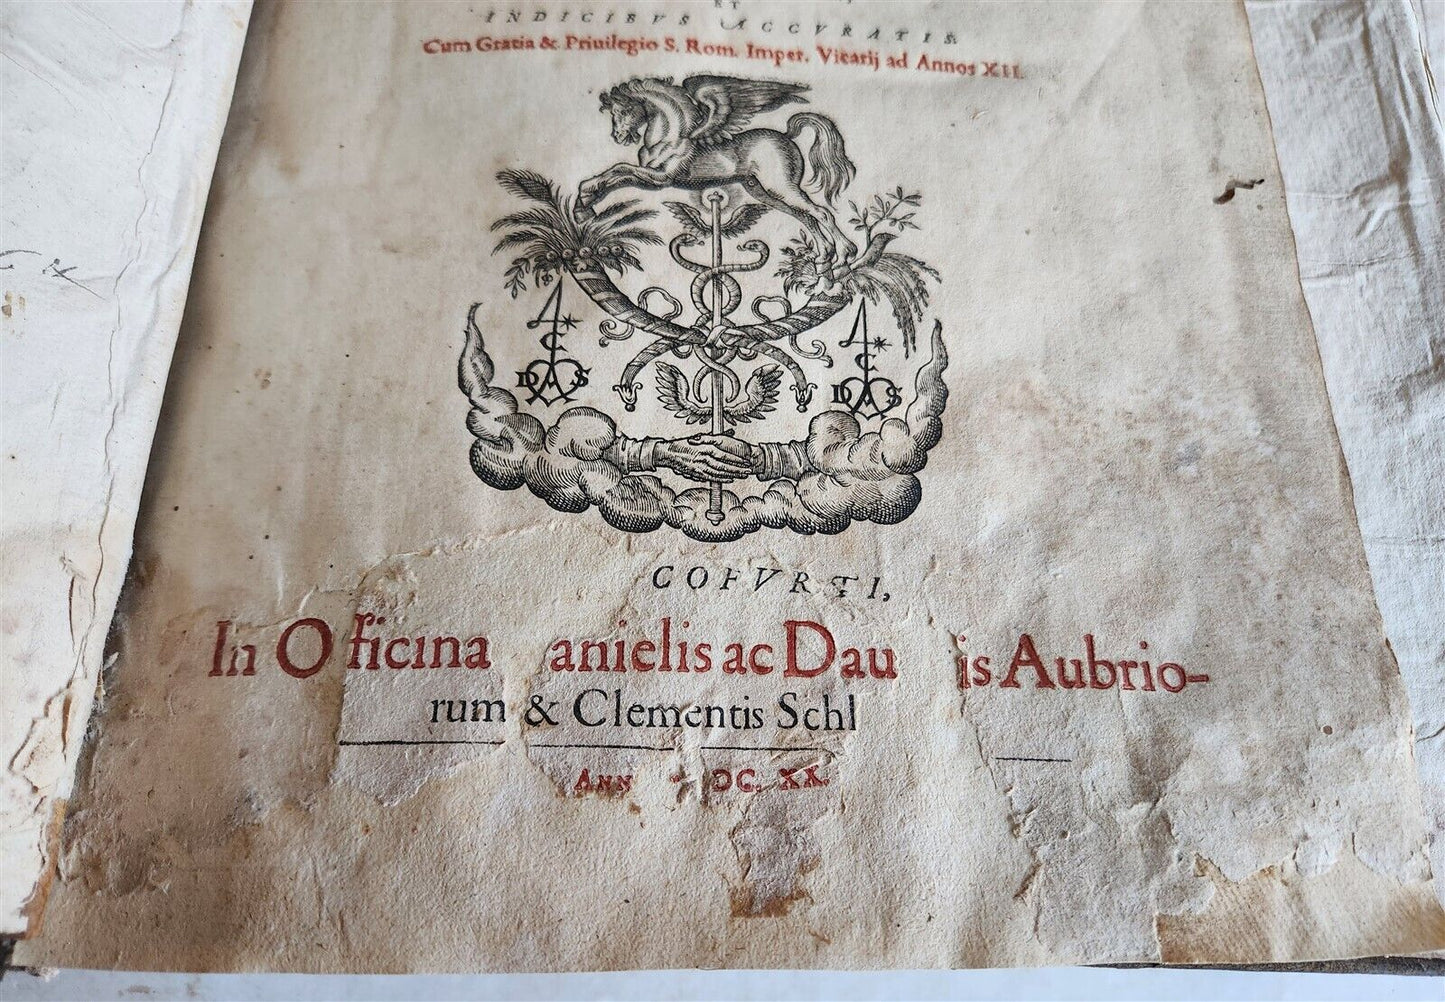 ET
INDICIBVS ACCVRATIS.
Cum Gratia & Priuilegio S. Rom. Imper. Vicarij ad Annos XII.
C
DAS
C
DAS
COFVRTI,
In Officina anielis ac Dau is Aubrio-
rum & Clementis Schl
ANN DC. XX.